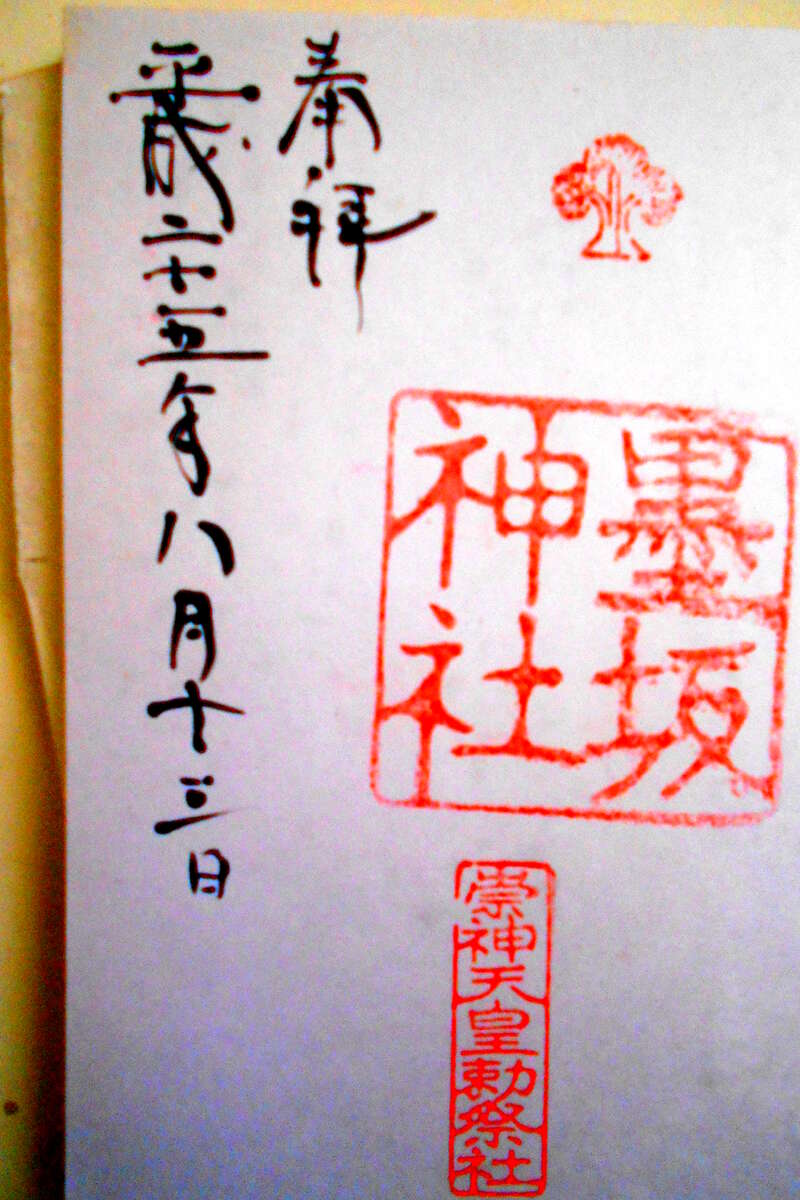 奉拝
平成二十五年八月十三日
墨坂
神社
崇神天皇勅祭社